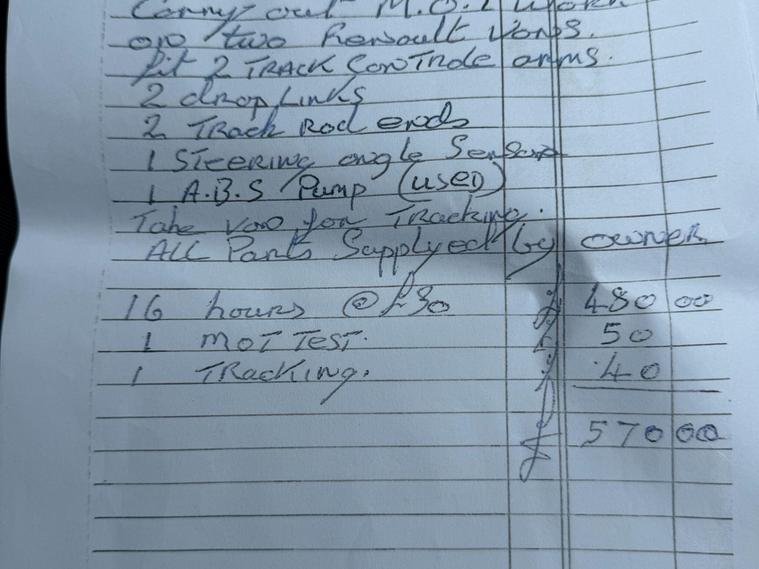 Carry out M.O.T Work
on two Renault Vans.
fit 2 TRACK ConTrole arms.
2 drop Links
2 Track Rod ends
1 STeering angle Sensor
1 A.B.S Pump (USED)
Take van for Tracking.
ALL Parts Supplyed by owner
16 hours @ £30 £ 480 00
1 MOT TEST. £ 50
1 TRacking. £ 40
£ 570 00